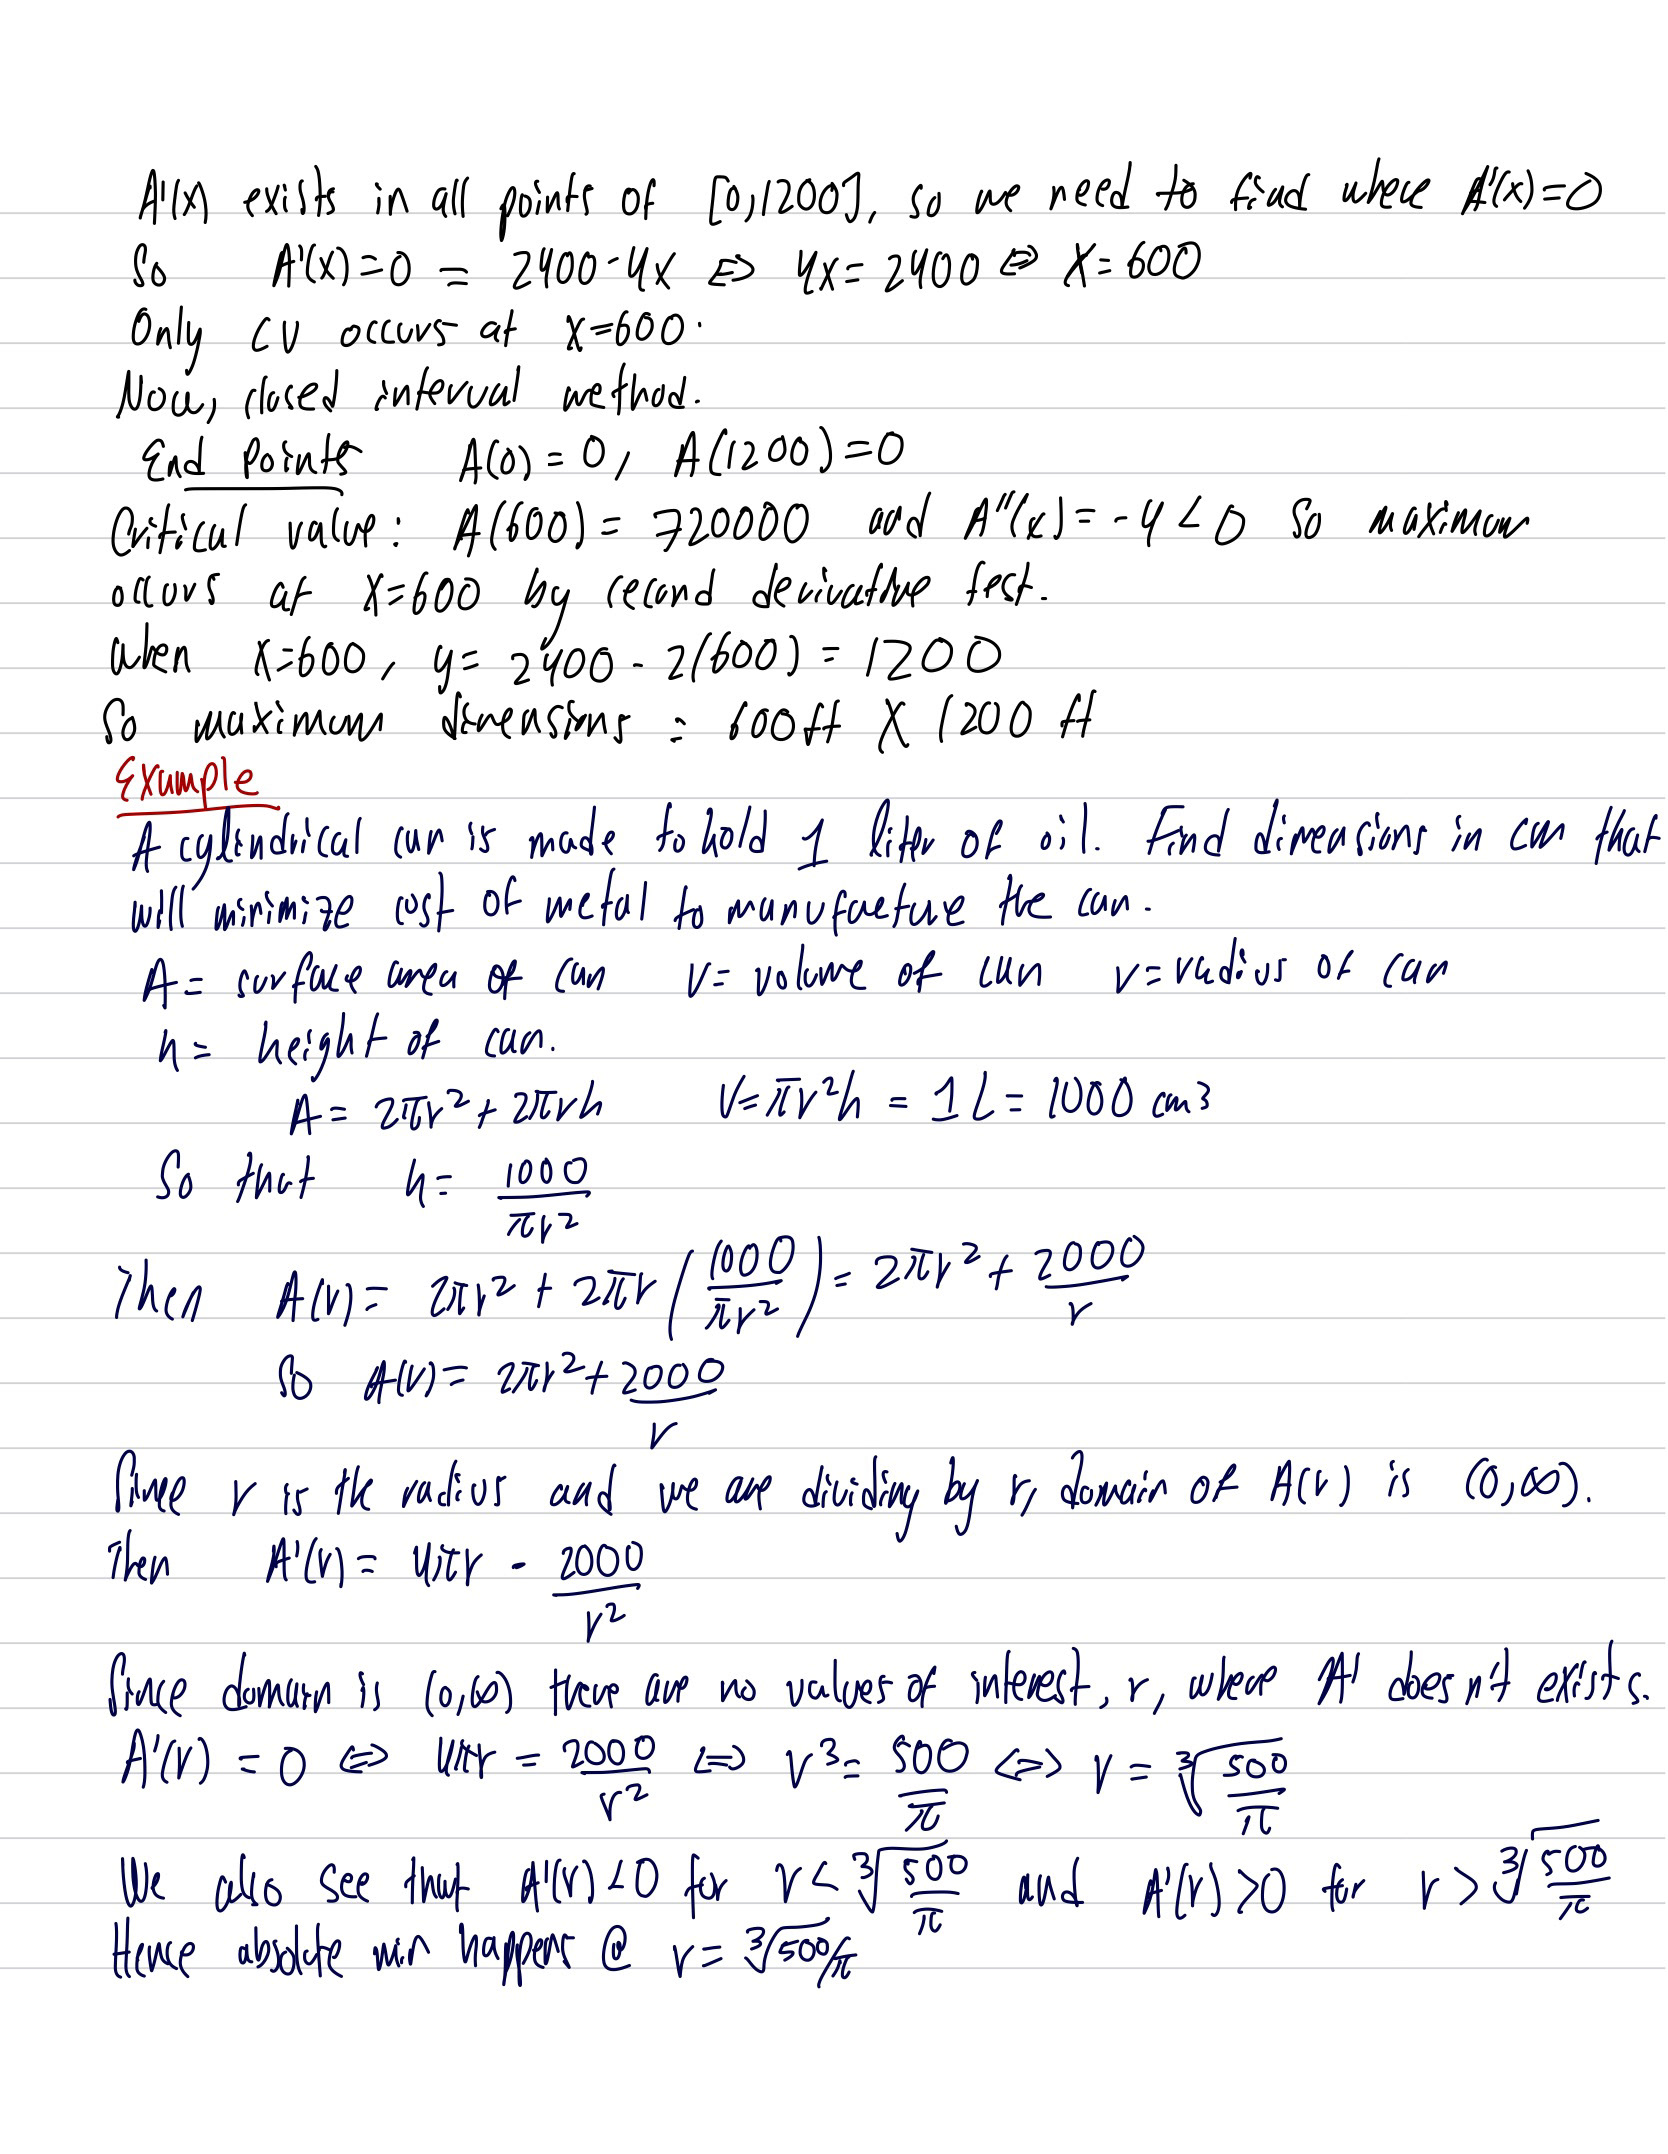 A'(x) exists in all points of [0,1200], so we need to find where A'(x)=0
So A'(x)=0 = 2400-4x ⇔ 4x=2400 ⇔ x=600
Only CV occurs at x=600.
Now, closed interval method.
End Points A(0)=0, A(1200)=0
Critical value: A(600)= 720000 and A''(x)=-4<0 so maximum
occurs at x=600 by second derivative test.
when x=600, y= 2400-2(600)=1200
So maximum dimensions = 600ft X 1200 ft
Example
A cylindrical can is made to hold 1 liter of oil. Find dimensions in can that
will minimize cost of metal to manufacture the can.
A= surface area of can V= volume of can r=radius of can
h= height of can.
A= 2πr²+2πrh V=πr²h = 1L= 1000 cm3
So that h= 1000/πr²
Then A(r)= 2πr² + 2πr (1000/πr²) = 2πr² + 2000/r
So A(r)= 2πr²+2000/r
Since r is the radius and we are dividing by r, domain of A(r) is (0,∞).
Then A'(r)= 4πr - 2000/r²
Since domain is (0,∞) there are no values of interest, r, where A' doesn't exists.
A'(r) = 0 ⇔ 4πr = 2000/r² ⇔ r³= 500/π ⇔ r = ∛(500/π)
We also see that A'(r)<0 for r< ∛(500/π) and A'(r)>0 for r> ∛(500/π)
Hence absolute min happens @ r= ∛(500/π)